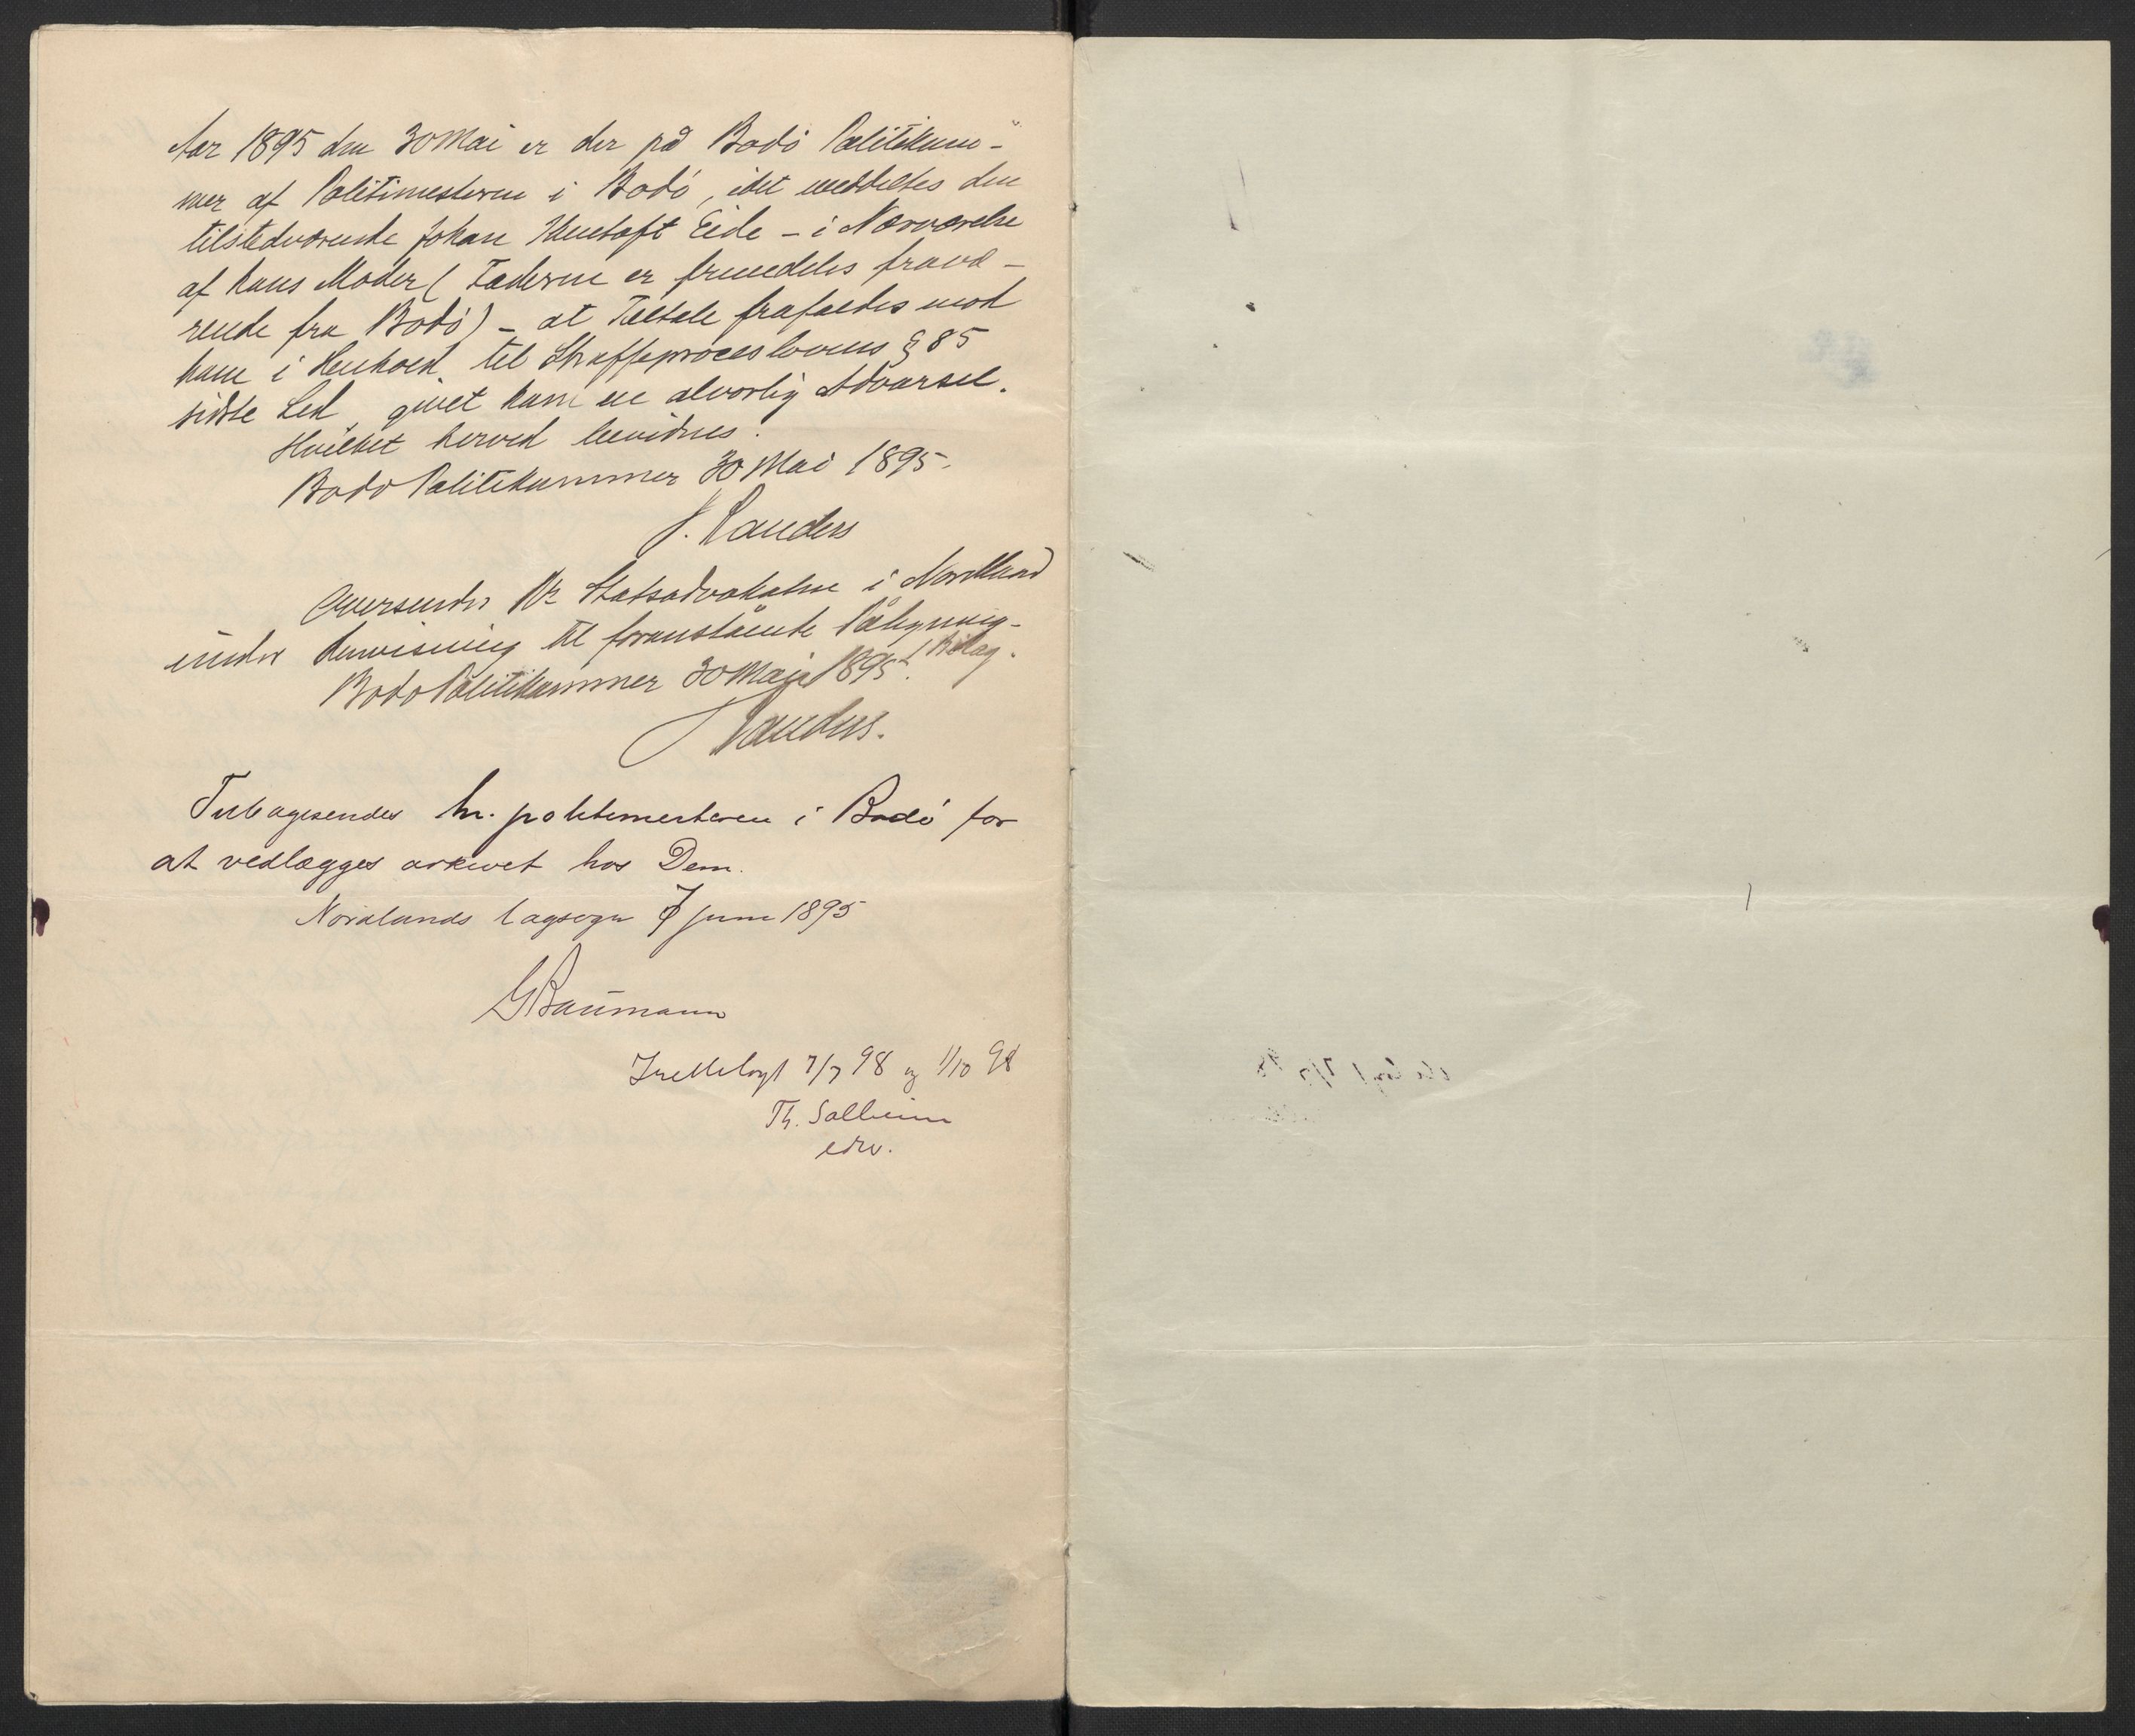 Aar 1895 den 30 Mai er der på Bodø Politikam-
mer af Politimesteren i Bodø, idet meddeltes den
tilstedværende Johan Eide – i Nærværelse
af hans Moder (Faderen er fremdeles fravæ-
rende fra Bodø) – at Tiltale frafaldes mod
ham i Henhold til Straffeproceslovens § 85
sidste Led, givet ham en alvorlig Advarsel.
Hvilket herved bevidnes.
Bodø Politikammer 30 Mai 1895.
J. Sanders
Oversendes Hr Statsadvokaten i Nordland
under Henvisning til foranstående Påtegning.
1 Bilag.
Bodø Politikammer 30 Mai 1895.
J Sanders.
Tilbagesendes hr. politimesteren i Bodø for
at vedlægges arkivet hos Dem.
Nordlands lagsogn 7 juni 1895
G Baumann
Irettelagt 7/7 98 og 1/10 98
Th. Solheim
edsv.